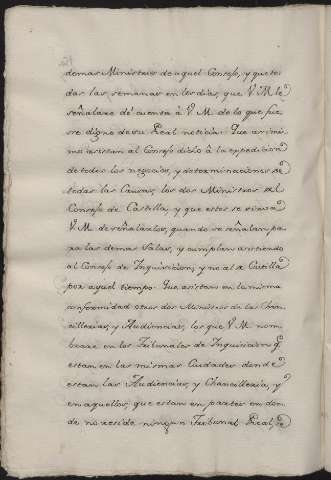 demas Ministros de aquel Consejo, y que to
das las semanas en los dias, que V. M. le
señalare dé cuenta á V. M. de lo que fue
re digno de su Real noticia. Que assimis
mo asistan al Consejo dicho á la expedicion
de todos los negocios, y determinaciones de
todas las Causas, los dos Ministros del
Consejo de Castilla, y que estos se sirva
V. M. de señalarlos, quando se señalan pa
ra las demas Salas, y cumplan asistiendo
al Consejo de Inquisicion, y no al de Castilla
por aquel tiempo. Que asistan en la misma
conformidad otros dos Ministros de las Chan
cillerias, y Audiencias, los que V. M. nom
brare en los Tribunales de Inquisicion q.
estan en las mismas Ciudades donde
estan las Audiencias, y Chancilleria, y
en aquellos, que estan en partes en don
de no reside ningun Tribunal Real, se